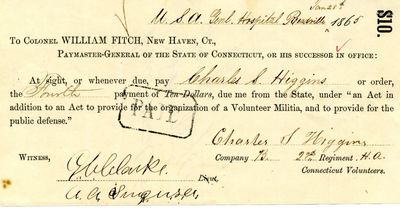 Jan 28th
U.S.A. Genl. Hospital 1865
$10.
To Colonel WILLIAM FITCH, New Haven, Ct.,
Paymaster-General of the State of Connecticut, or his successor in office:
At sight, or whenever due, pay Charles S. Higgins or order,
the Fourth payment of Ten Dollars, due me from the State, under "an Act in
addition to an Act to provide for the organization of a Volunteer Militia, and to provide for the
public defense."
PAID
Charles S Higgins
Company B. 2nd Regiment H.A.
Connecticut Volunteers.
Witness,
Lieut.